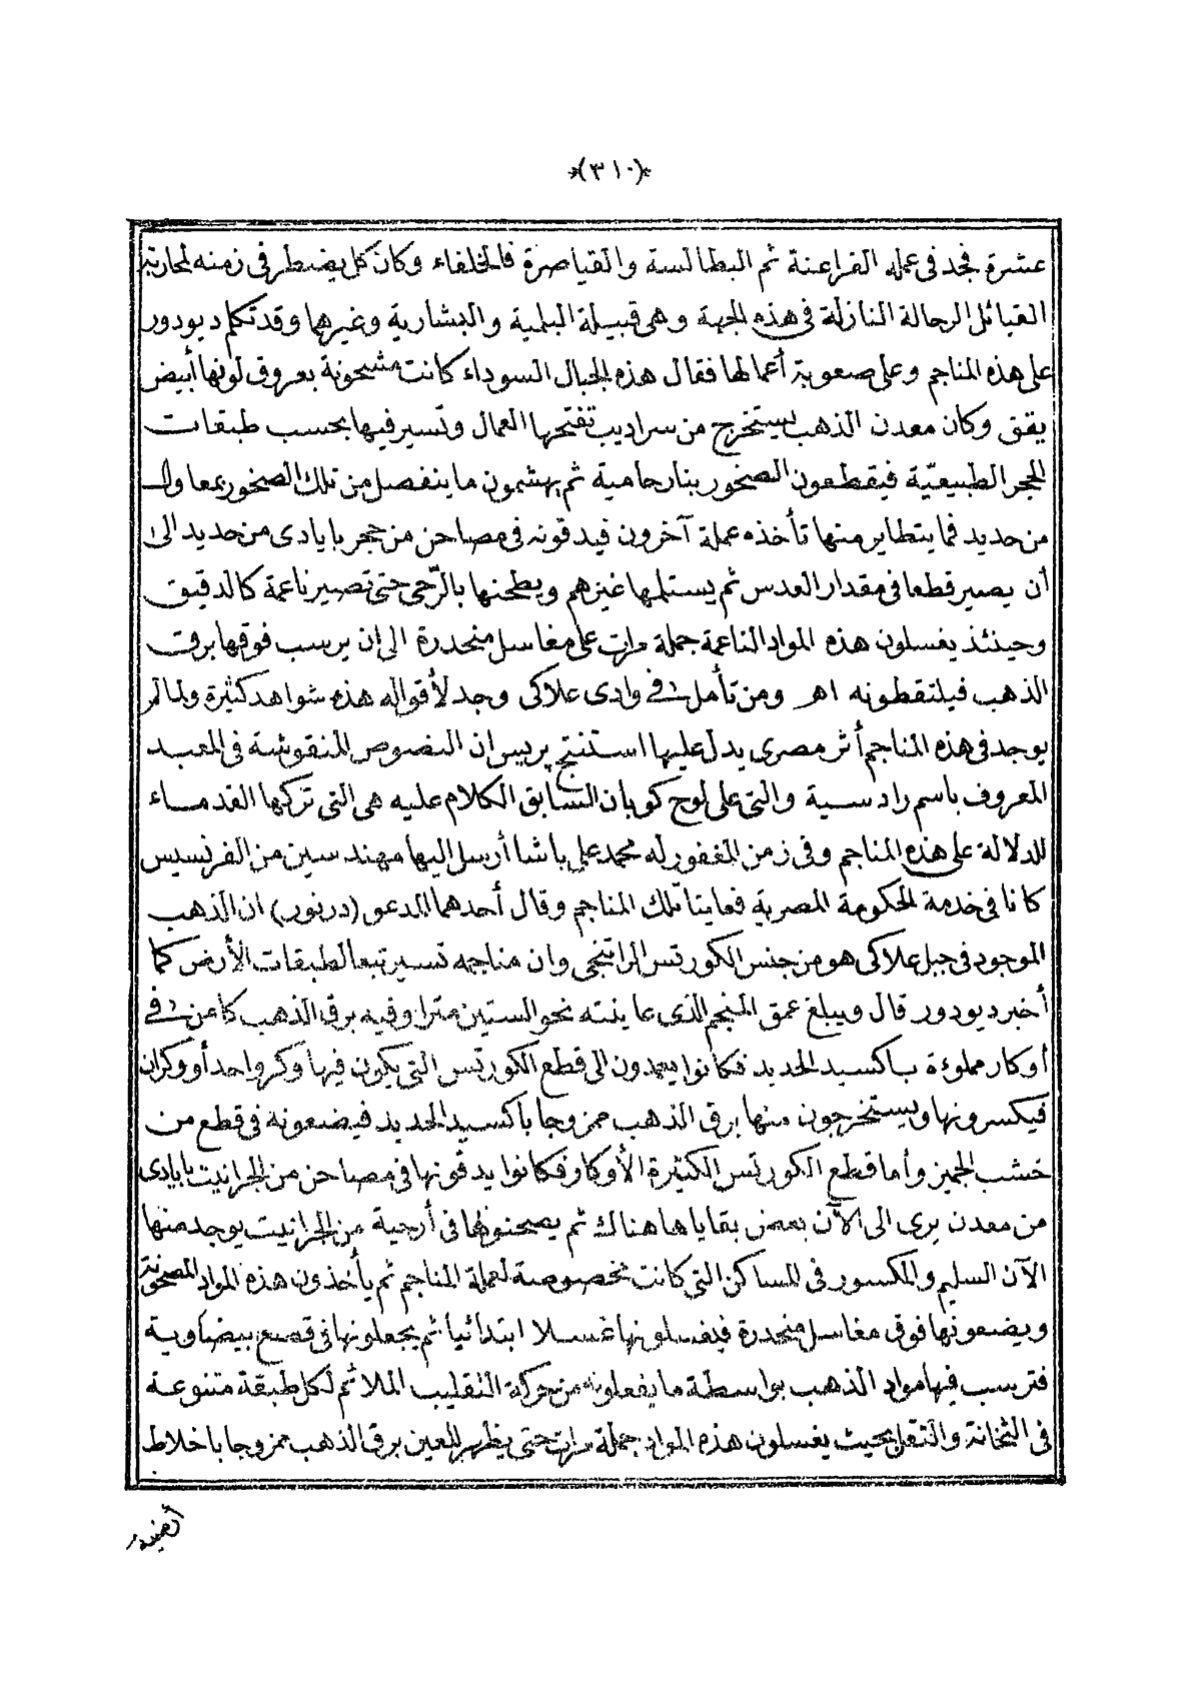 *(٣١٠)*
عشرة فجد فى عمله الفراعنة ثم البطالسة والقياصرة فالخلفاء وكان كل يضطر فى زمنه لمحاربة
القبائل الرحالة النازلة فى هذه الجهة وهى قبيلة البلمية والبشارية وغيرها وقد تكلم ديودور
على هذه المناجم وعلى صعوبة أعمالها فقال هذه الجبال السوداء كانت مشحونة بعروق لونها أبيض
يقق وكان معدن الذهب يستخرج من سراديب تفتحها العمال وتسير فيها بحسب طبقات
الحجر الطبيعيّة فيقطعون الصخور بنار حامية ثم يهشمون ما ينفصل من تلك الصخور بمعاول
من حديد فما يتطاير منها تأخذه عملة آخرون فيدقونه فى مصاحن من حجر بايادى من حديد الى
أن يصير قطعا فى مقدار العدس ثم يستلمها غيرهم ويطحنها بالرّحى حتى تصير ناعمة كالدقيق
وحينئذ يغسلون هذه المواد الناعمة جملة مرات على مغاسل منحدرة الى ان يرسب فوقها برق
الذهب فيلتقطونه اهـ ومن تأمل فى وادى علاكى وجد لأقواله هذه شواهد كثيرة ولما لم
يوجد فى هذه المناجم أثر مصرى يدل عليها استنتج بريس ان النصوص المنقوشة فى المعبد
المعروف باسم رادسية والتى على لوح كوبان السابق الكلام عليه هى التى تركها القدماء
للدلالة على هذه المناجم وفى زمن المغفور له محمد على باشا أرسل اليها مهندسين من الفرنسيس
كانا فى خدمة الحكومة المصرية فعاينا تلك المناجم وقال أحدهما المدعو (درنور) ان الذهب
الموجود فى جبل علاكى هو من جنس الكورتس الراتنجى وان مناجمه تسير تبعا لطبقات الأرض كما
أخبر ديودور قال ويبلغ عمق المنجم الذى عاينته نحو الستين مترا وفيه برق الذهب كامن فى
أوكار مملوءة باكسيد الحديد فكانوا يعمدون الى قطع الكورتس التى يكون فيها وكر واحد أو وكران
فيكسرونها ويستخرجون منها برق الذهب ممزوجا باكسيد الحديد فيضعونه فى قطع من
خشب الجميز وأما قطع الكورتس الكثيرة الأوكار فكانوا يدقونها فى مصاحن من الجرانيت بايادى
من معدن يرى الى الآن بعض بقاياها هناك ثم يصحنونها فى أرحية من الجرانيت يوجد منها
الآن السليم والمكسور فى المساكن التى كانت مخصوصة لعملة المناجم ثم يأخذون هذه المواد المصحونة
ويضعونها فوق مغاسل منحدرة فيغسلونها غسلا ابتدائيا ثم يجعلونها فى قصع بيضاوية
فترسب فيها مواد الذهب بواسطة ما يفعلونه من حركة التقليب الملائم لكل طبقة متنوعة
فى الثخانة والثقل بحيث يغسلون هذه المواد جملة مرات حتى يظهر للعين برق الذهب ممزوجا باخلاط